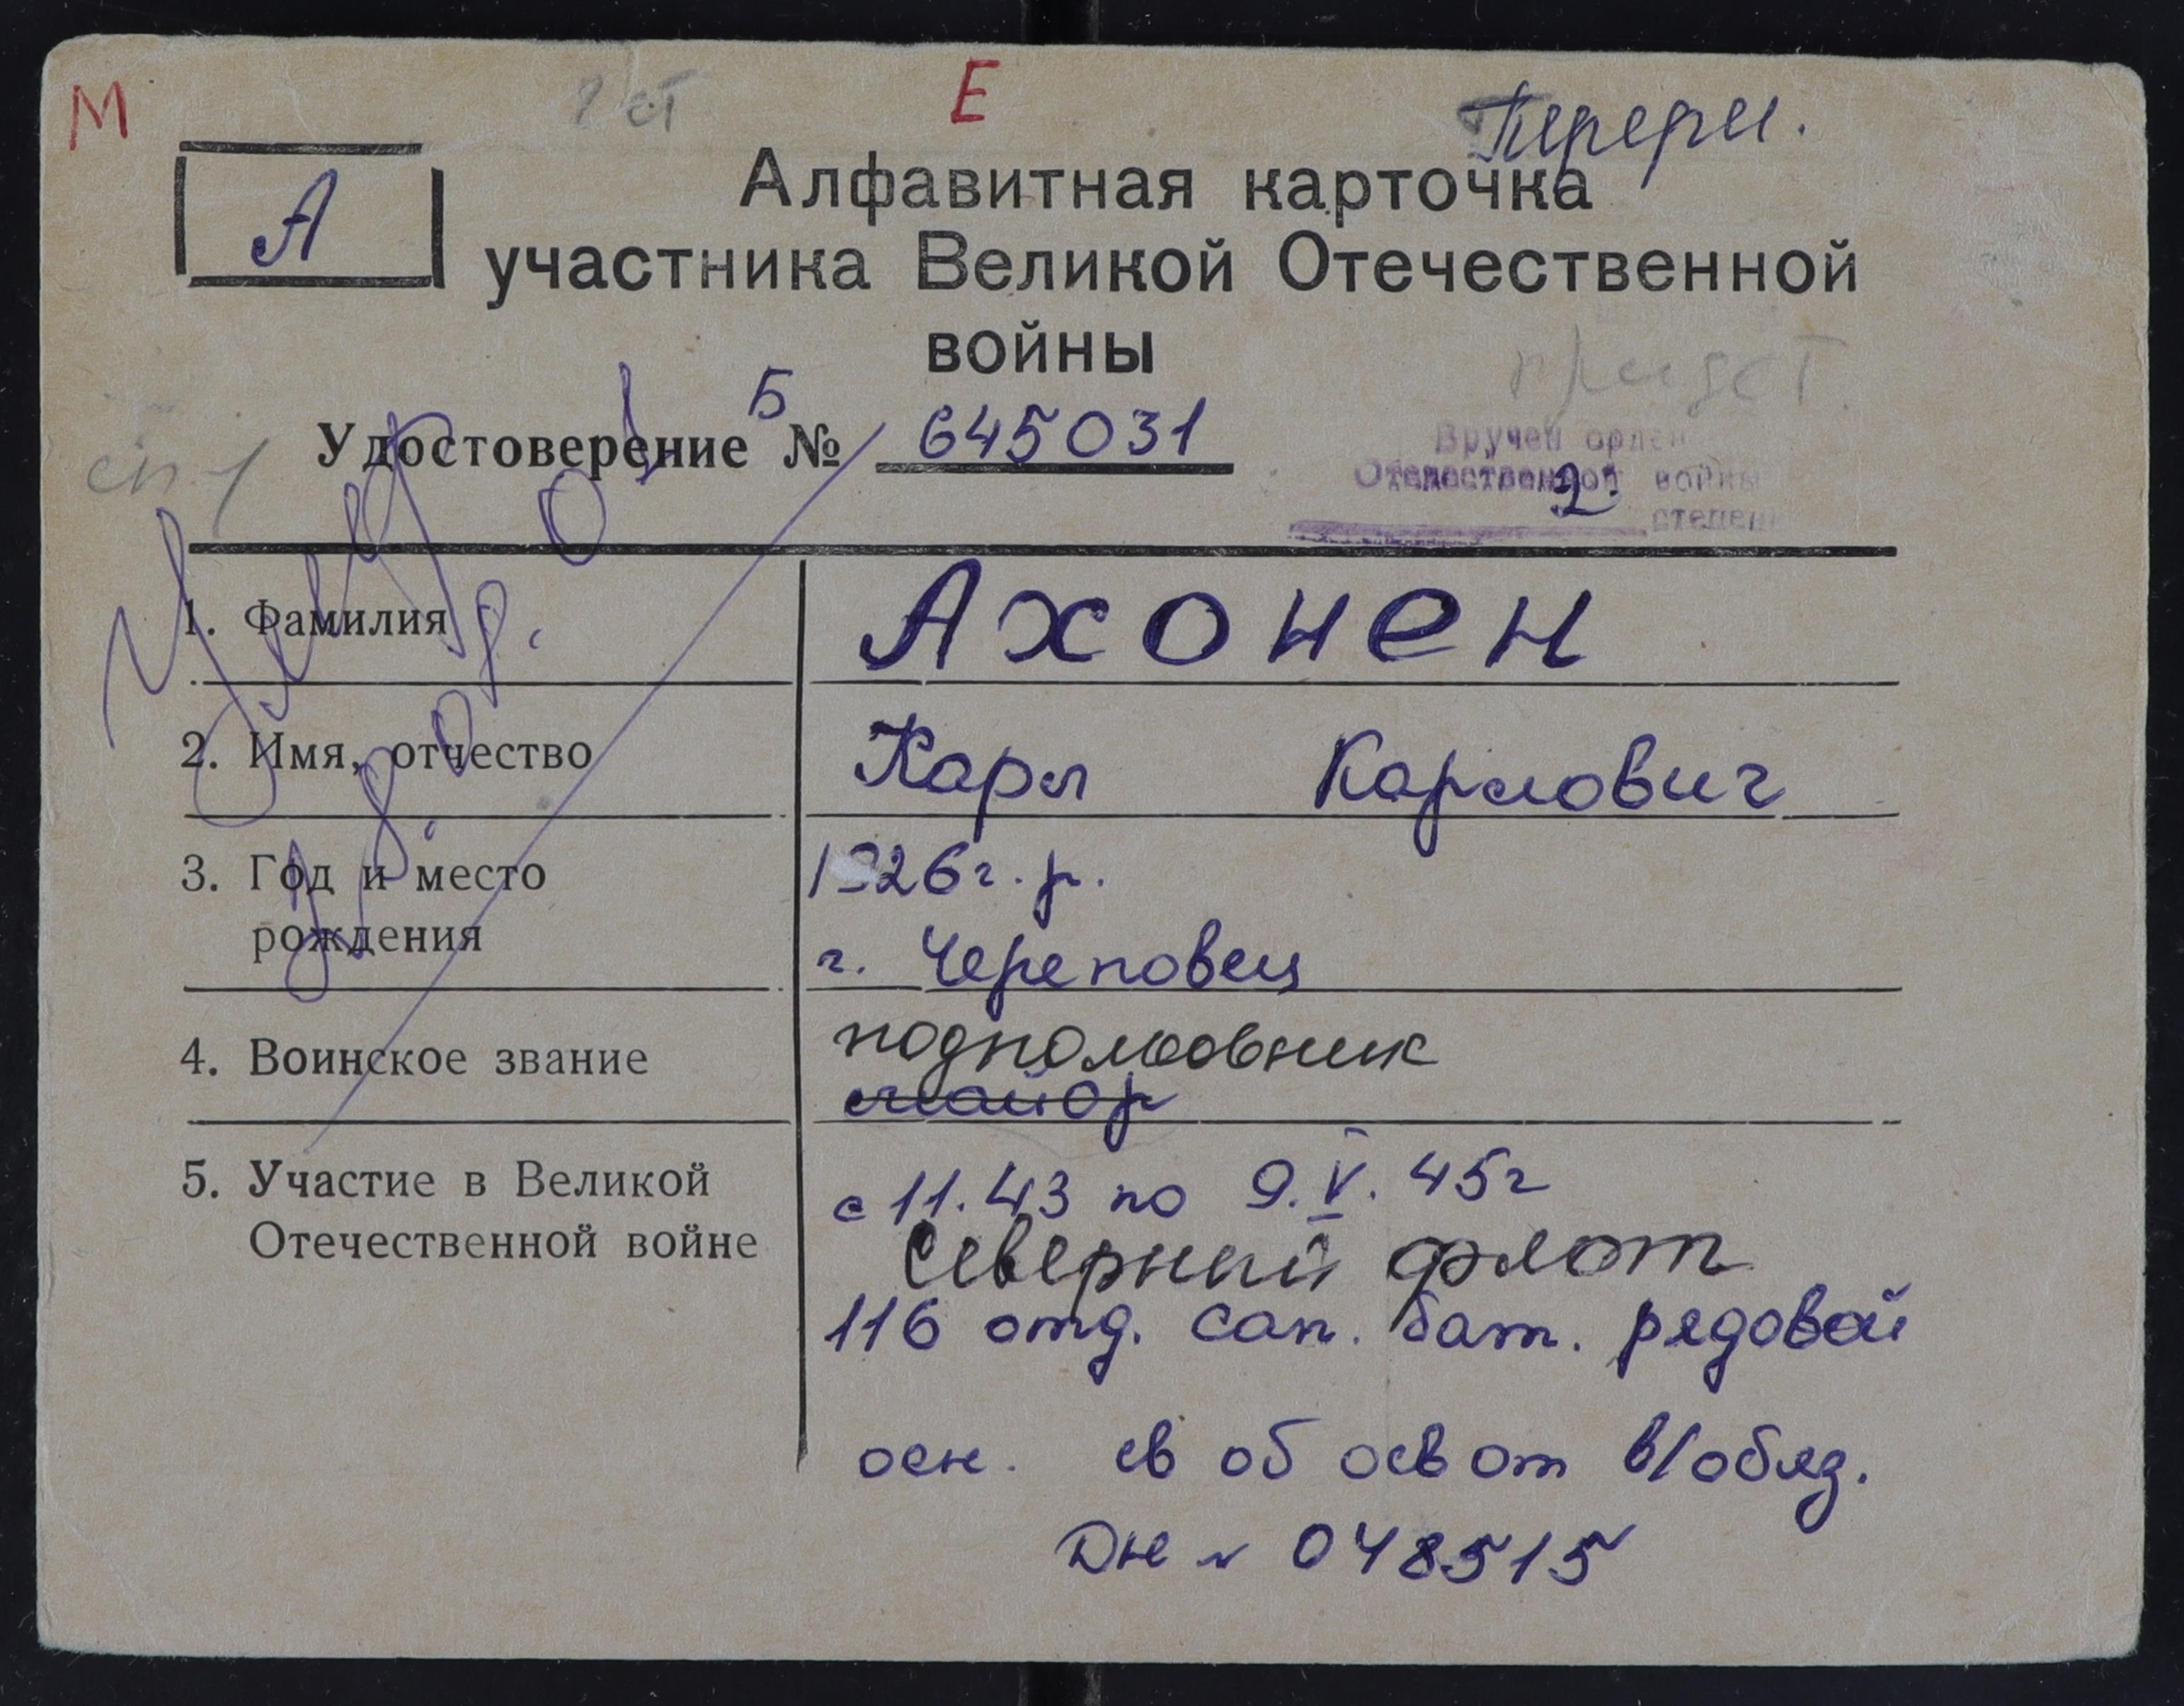 М
Е
А
Алфавитная карточка
участника Великой Отечественной
войны
Удостоверение Б № 645031
Вручен орден
Отечественной войны
2 степени
1. Фамилия
Ахонен
2. Имя, отчество
Карл Карлович
3. Год и место
рождения
1926 г. р.
г. Череповец
4. Воинское звание
подполковник
майор
5. Участие в Великой
Отечественной войне
с 11.43 по 9.V.45г
Северный флот
116 отд. сап. бат. рядовой
осн. св об осв от в/обяз.
ДН № 048515